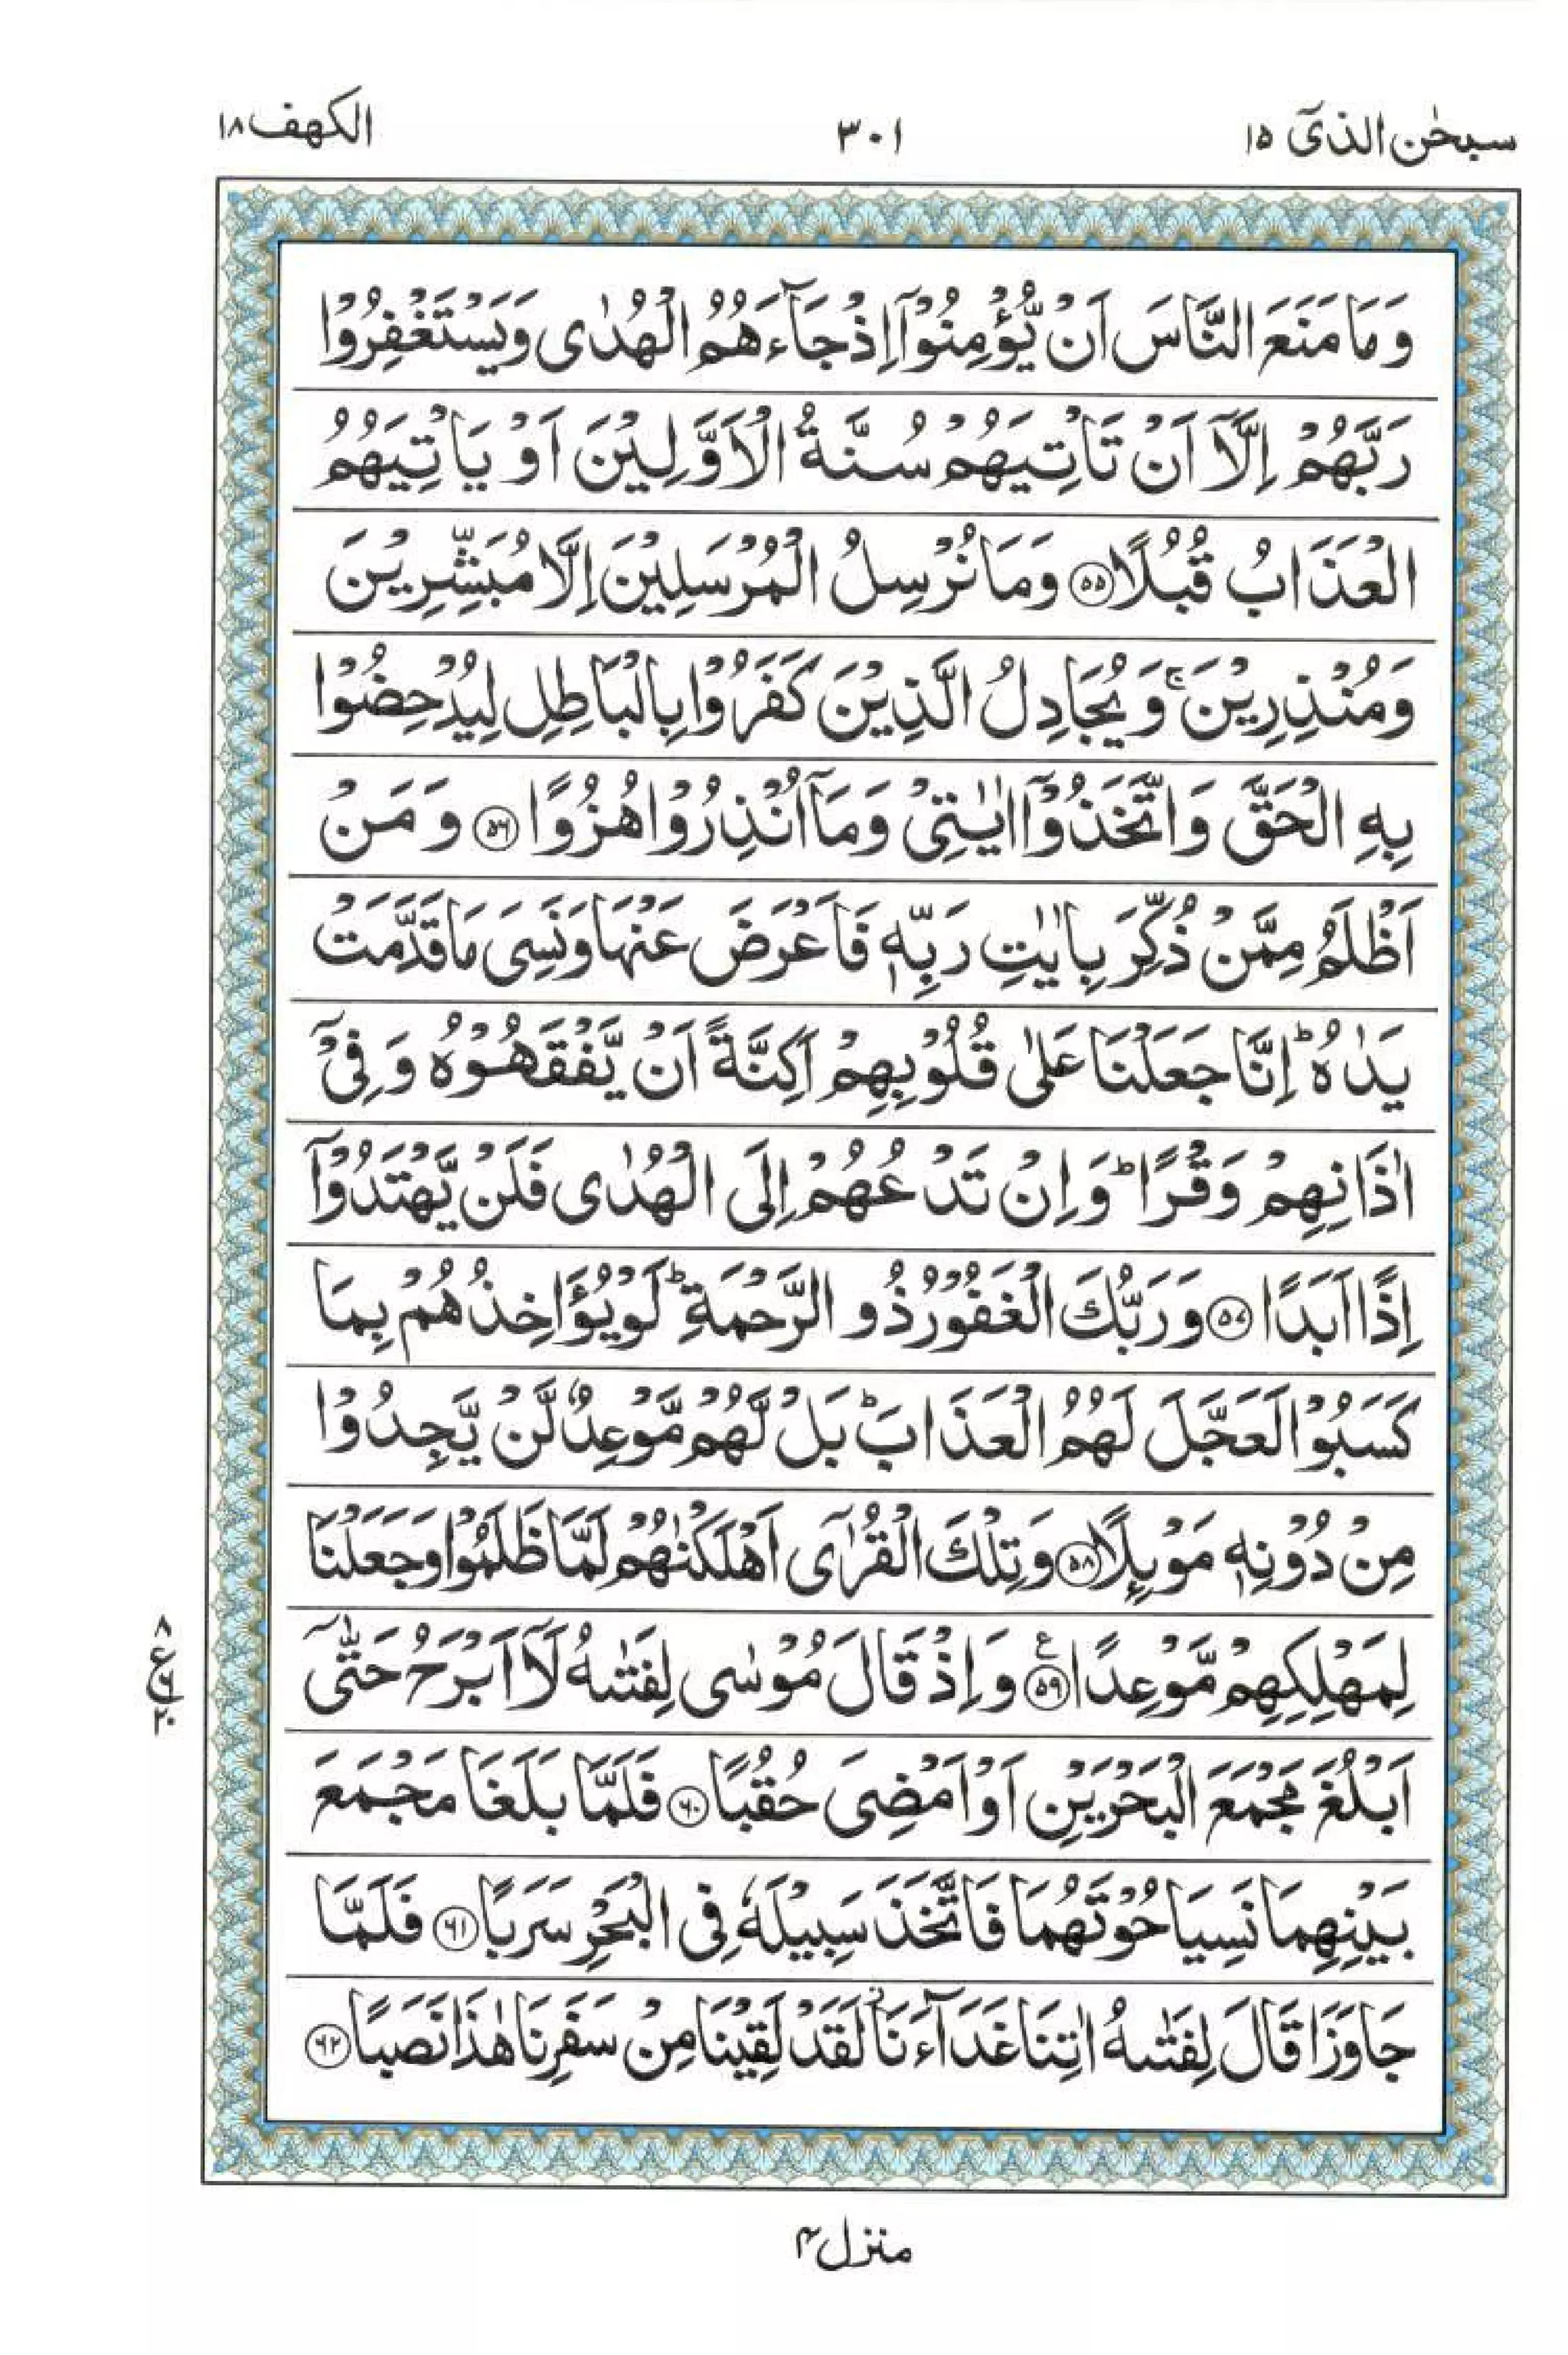 سبحٰن الذیٓ ۱۵
۳۰۱
الکهف ۱۸
وَمَا مَنَعَ النَّاسَ اَنْ يُّؤْمِنُوْۤا اِذْ جَآءَهُمُ الْهُدٰى وَيَسْتَغْفِرُوْا
رَبَّهُمْ اِلَّاۤ اَنْ تَاْتِيَهُمْ سُنَّةُ الْاَوَّلِيْنَ اَوْ يَاْتِيَهُمُ
الْعَذَابُ قُبُلًا ۝۵۵ وَمَا نُرْسِلُ الْمُرْسَلِيْنَ اِلَّا مُبَشِّرِيْنَ
وَمُنْذِرِيْنَ ۚ وَيُجَادِلُ الَّذِيْنَ كَفَرُوْا بِالْبَاطِلِ لِيُدْحِضُوْا
بِهِ الْحَقَّ وَاتَّخَذُوْۤا اٰيٰتِىْ وَمَاۤ اُنْذِرُوْا هُزُوًا ۝۵۶ وَمَنْ
اَظْلَمُ مِمَّنْ ذُكِّرَ بِاٰيٰتِ رَبِّهٖ فَاَعْرَضَ عَنْهَا وَنَسِىَ مَا قَدَّمَتْ
يَدٰهُ ؕ اِنَّا جَعَلْنَا عَلٰى قُلُوْبِهِمْ اَكِنَّةً اَنْ يَّفْقَهُوْهُ وَفِىْۤ
اٰذَانِهِمْ وَقْرًا ؕ وَاِنْ تَدْعُهُمْ اِلَى الْهُدٰى فَلَنْ يَّهْتَدُوْۤا
اِذًا اَبَدًا ۝۵۷ وَرَبُّكَ الْغَفُوْرُ ذُو الرَّحْمَةِ ؕ لَوْ يُؤَاخِذُهُمْ بِمَا
كَسَبُوْا لَعَجَّلَ لَهُمُ الْعَذَابَ ؕ بَلْ لَّهُمْ مَّوْعِدٌ لَّنْ يَّجِدُوْا
مِنْ دُوْنِهٖ مَوْئِلًا ۝۵۸ وَتِلْكَ الْقُرٰٓى اَهْلَكْنٰهُمْ لَمَّا ظَلَمُوْا وَجَعَلْنَا
لِمَهْلِكِهِمْ مَّوْعِدًا ۝۵۹ ع وَاِذْ قَالَ مُوْسٰى لِفَتٰىهُ لَاۤ اَبْرَحُ حَتّٰۤى
۸ ع ۶ ۲۰
اَبْلُغَ مَجْمَعَ الْبَحْرَيْنِ اَوْ اَمْضِىَ حُقُبًا ۝۶۰ فَلَمَّا بَلَغَا مَجْمَعَ
بَيْنِهِمَا نَسِيَا حُوْتَهُمَا فَاتَّخَذَ سَبِيْلَهٗ فِى الْبَحْرِ سَرَبًا ۝۶۱ فَلَمَّا
جَاوَزَا قَالَ لِفَتٰىهُ اٰتِنَا غَدَآءَنَا ؗ لَقَدْ لَقِيْنَا مِنْ سَفَرِنَا هٰذَا نَصَبًا ۝۶۲
منزل ۴